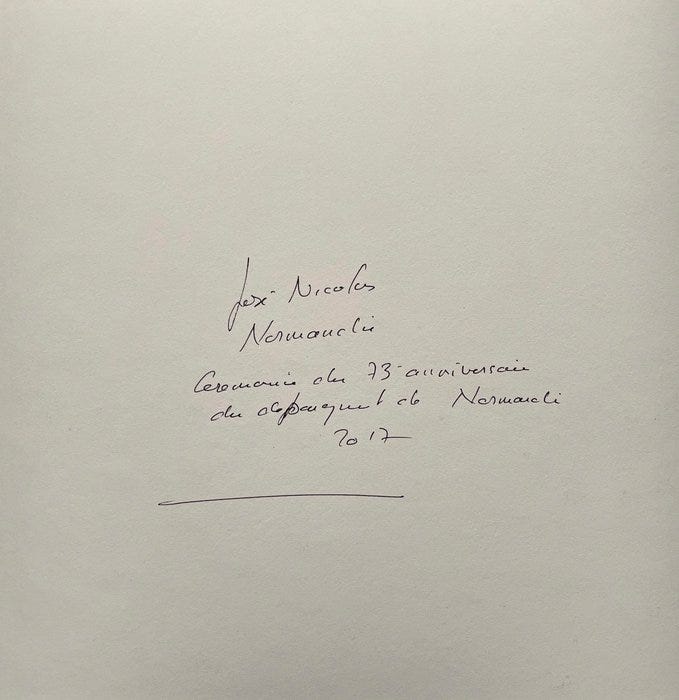 José Nicolas
Normandie
Ceremonie du 73e anniversaire
du debarquement de Normandie
2017